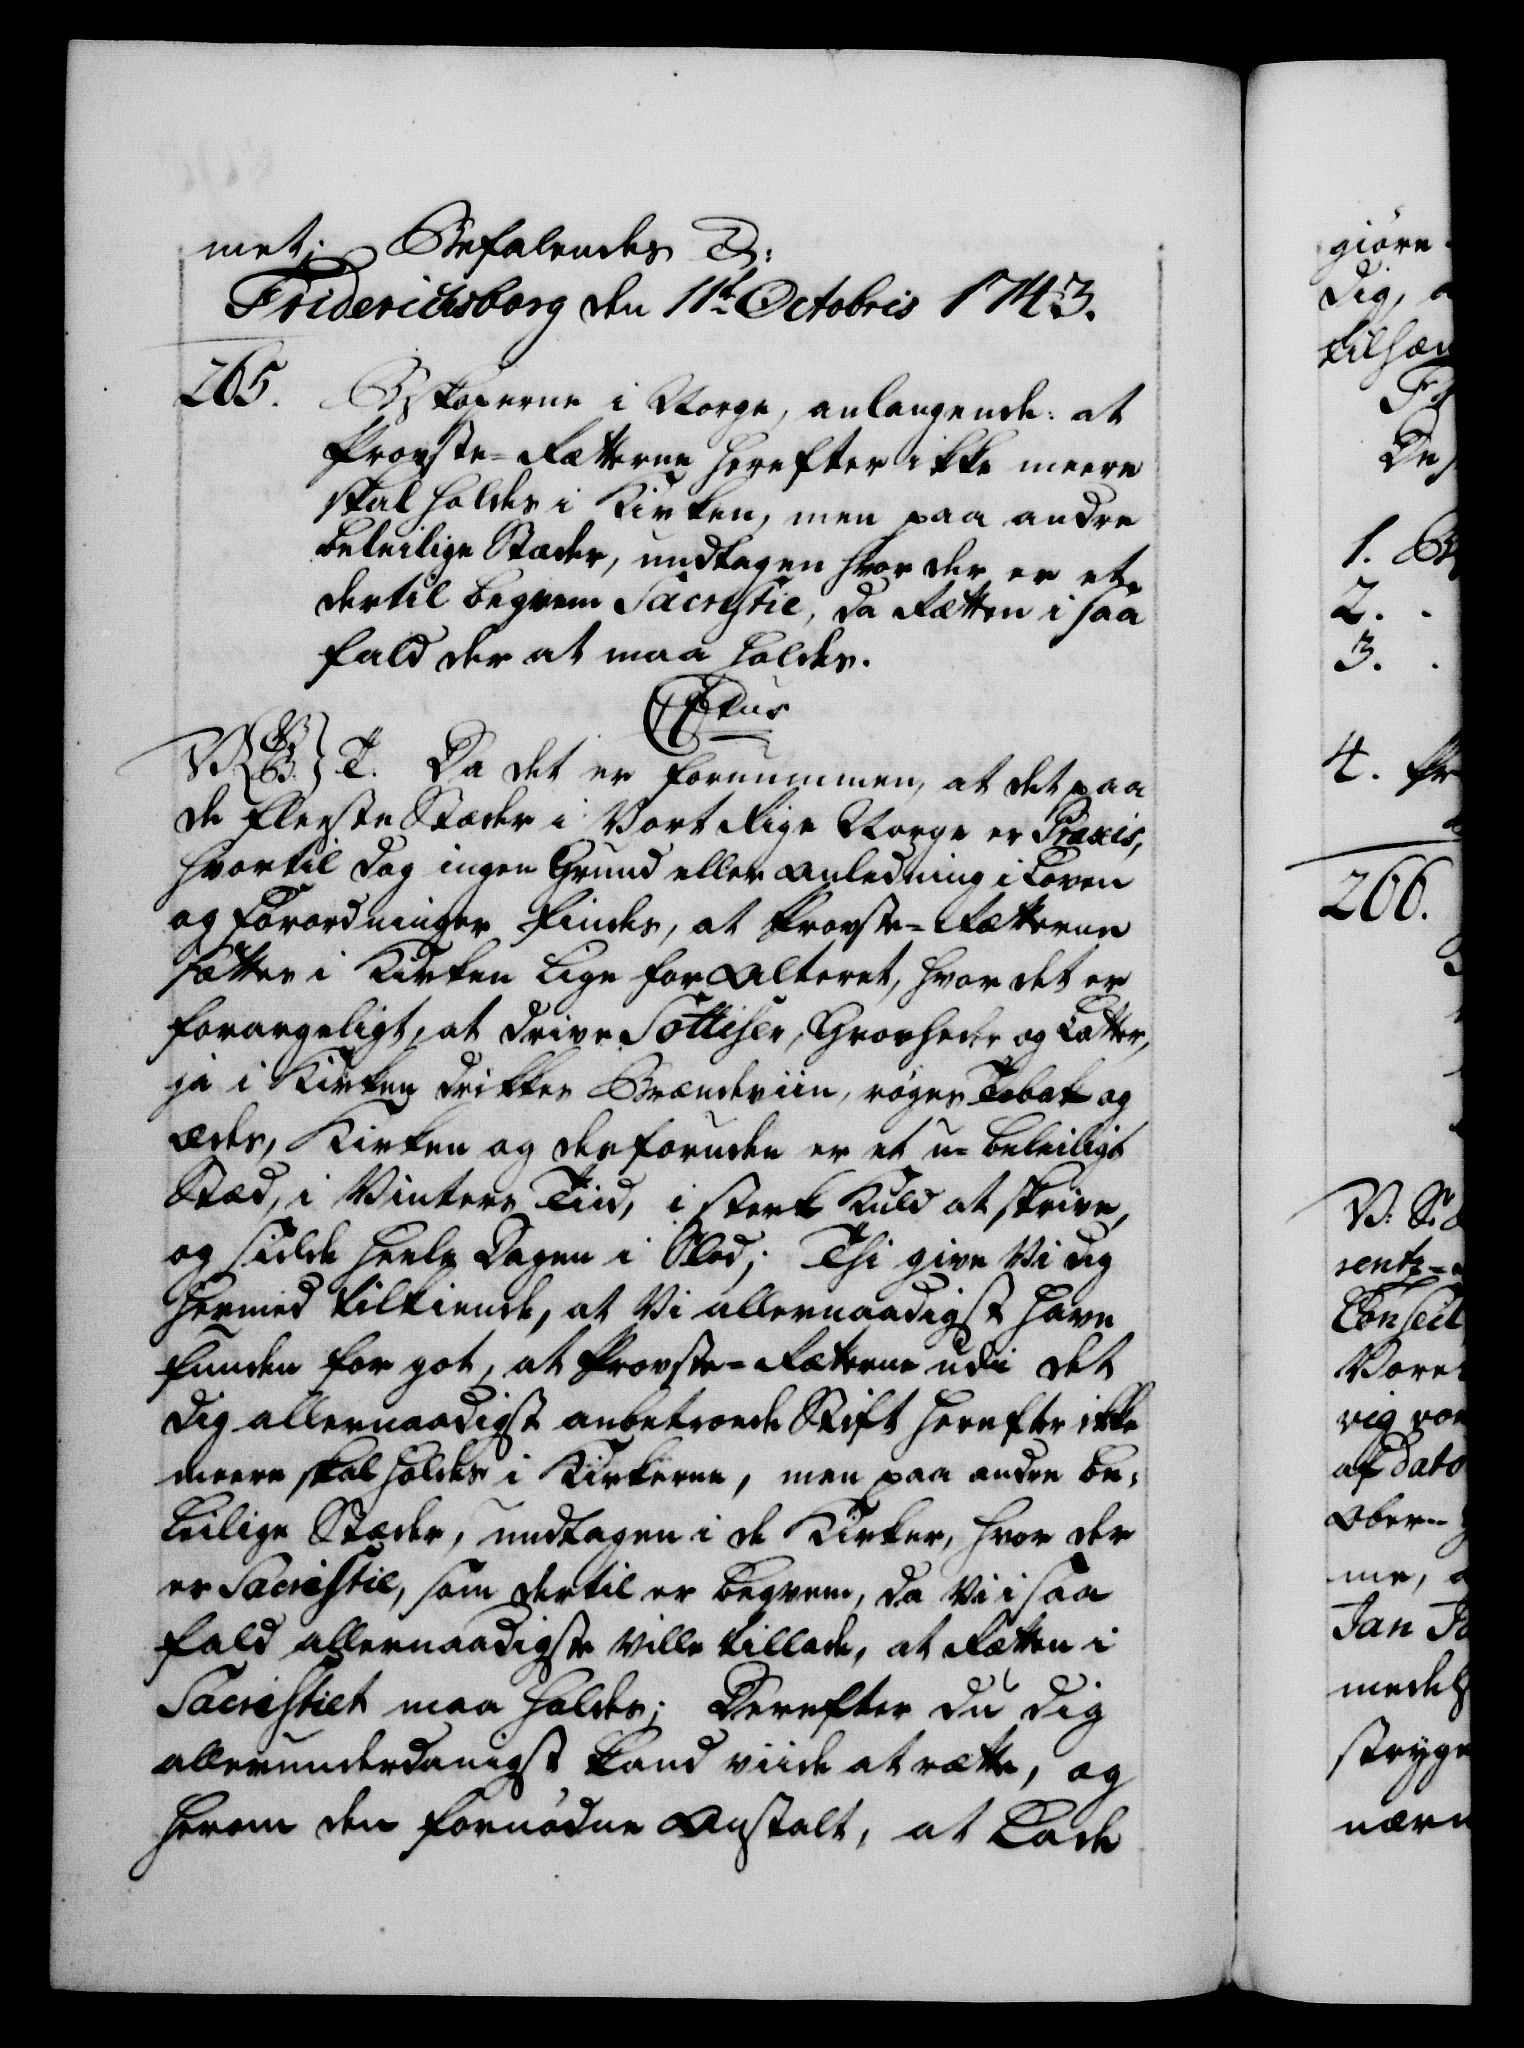 met; Befalendes D:
Friderichsborg den 11te Octobris 1743.
265. Biskoperne i Norge, anlangende: at
Provste-Rætterne herefter ikke meere
skal holdes i Kirken, men paa andre
beleilige Stæder, undtagen hvor der er et
dertil beqvem Sacristie, da Rætten i saa
fald der at maa holdes.
V. G. T. Da det er fornummen, at det paa
de fleeste Stæder i Vort Rige Norge er Praxis,
hvortil dog ingen Grund eller Anledning i Loven
og Forordninger findes, at Provste-Rætterne
sættes i Kirken lige for Alteret, hvor det er
forargeligt, at drive Sottiser, Grovheder og Latter,
ja i Kirken drikkes Brændeviin, røges Tobak og
ædes, Kirken og desforuden er et u-beleiligt
Stæd, i Vinters Tiid, i sterk Kuld at skrive,
og sidde heele Dagen i Slod; Thi give Vi dig
hermed tilkiende, at Vi allernaadigst have
funden for got, at Provste-Rætterne udi det
dig allernaadigst anbetroede Stift herefter ikke
meere skal holdes i Kirkerne, men paa andre be-
leilige Stæder, undtagen i de Kirker, hvor der
er Sacristie, som dertil er beqvem, da Vi i saa
fald allernaadigste ville tillade, at Rætten i
Sacristiet maa holdes; Derefter du dig
allerunderdanigst kand viide at rætte, og
herom den fornødne Anstalt, at Lade
giøre
dig, a
tilhæn
1.
2.
3.
4. Pr
266.
V: S.
rentz-
Conseil
Vores
vig von
af Dato
Ober-
me, a
Jan
medels
stryge
nærv